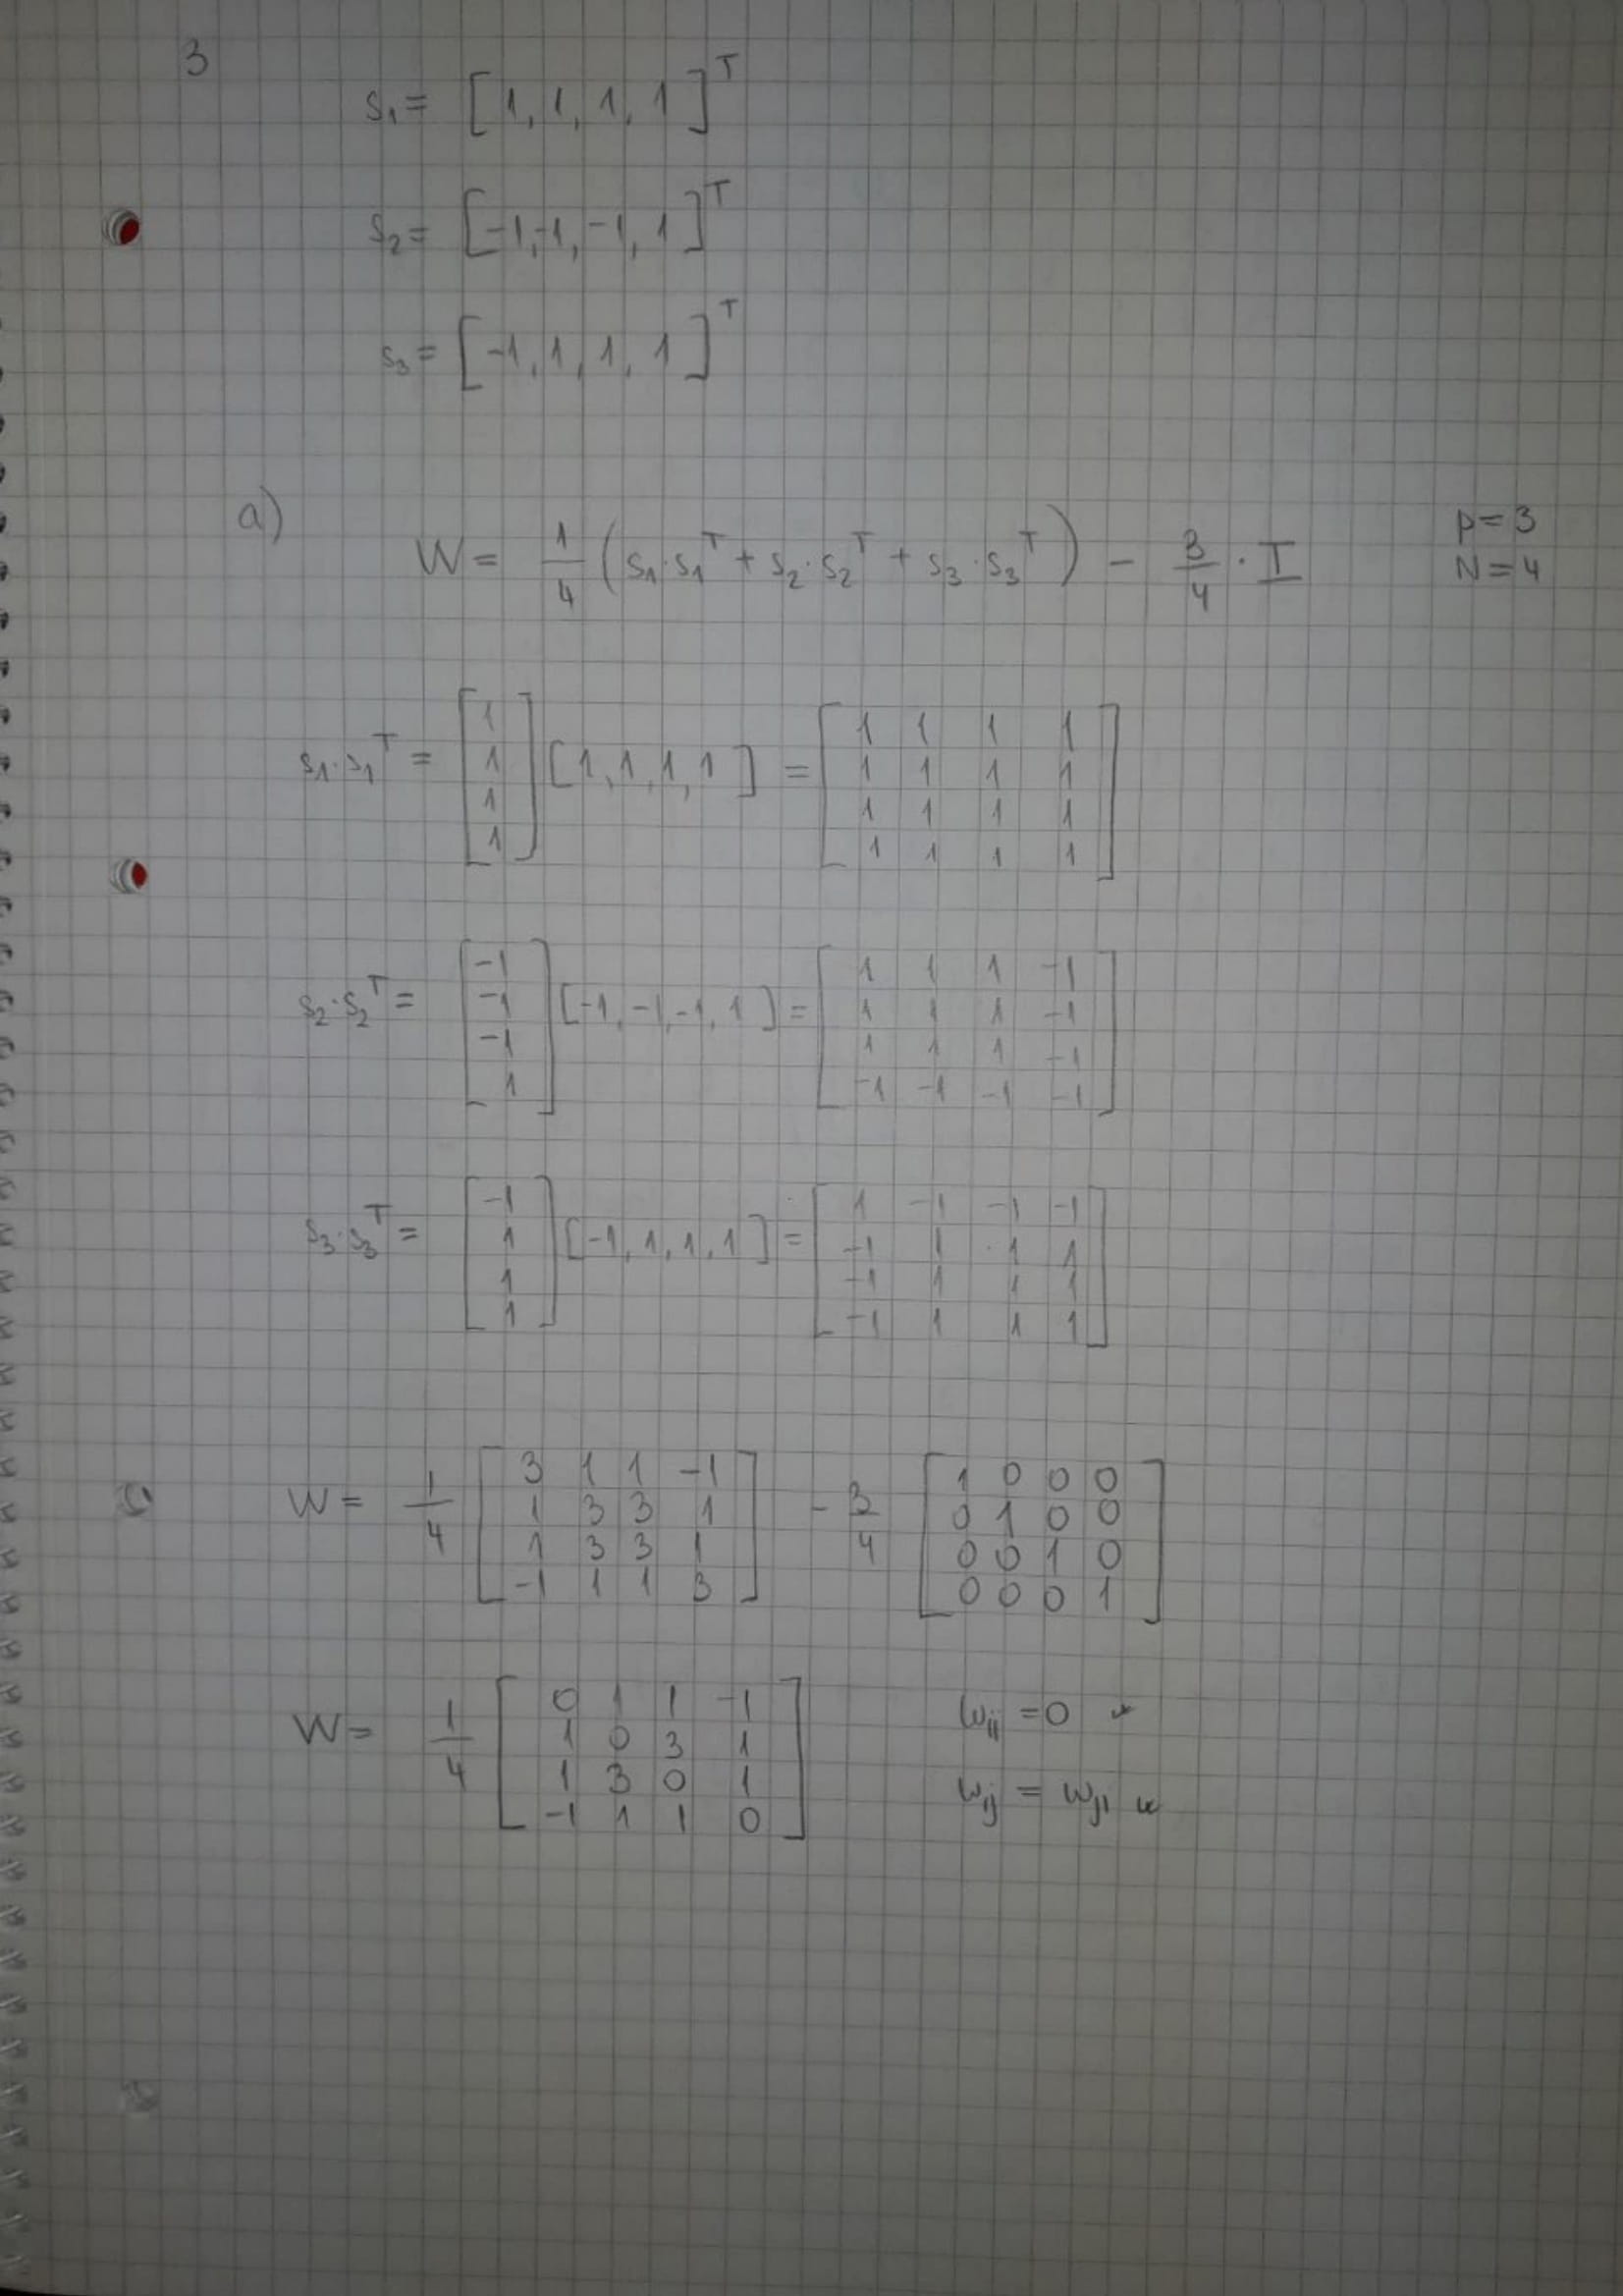 3
s₁ = [1, 1, 1, 1]ᵀ
s₂ = [-1, -1, -1, 1]ᵀ
s₃ = [-1, 1, 1, 1]ᵀ
a) W = 1/4 (s₁·s₁ᵀ + s₂·s₂ᵀ + s₃·s₃ᵀ) - 3/4 · I
p = 3
N = 4
s₁·s₁ᵀ = [1 1 1 1] [1, 1, 1, 1] = [
1 1 1 1
1 1 1 1
1 1 1 1
1 1 1 1
]
s₂·s₂ᵀ = [-1 -1 -1 1] [-1, -1, -1, 1] = [
1 1 1 -1
1 1 1 -1
1 1 1 -1
-1 -1 -1 -1
]
s₃·s₃ᵀ = [-1 1 1 1] [-1, 1, 1, 1] = [
1 -1 -1 -1
-1 1 1 1
-1 1 1 1
-1 1 1 1
]
W = 1/4 [
3 1 1 -1
1 3 3 1
1 3 3 1
-1 1 1 3
] - 3/4 [
1 0 0 0
0 1 0 0
0 0 1 0
0 0 0 1
]
W = 1/4 [
0 1 1 -1
1 0 3 1
1 3 0 1
-1 1 1 0
]
wᵢᵢ = 0 ✓
wᵢⱼ = wⱼᵢ ✓